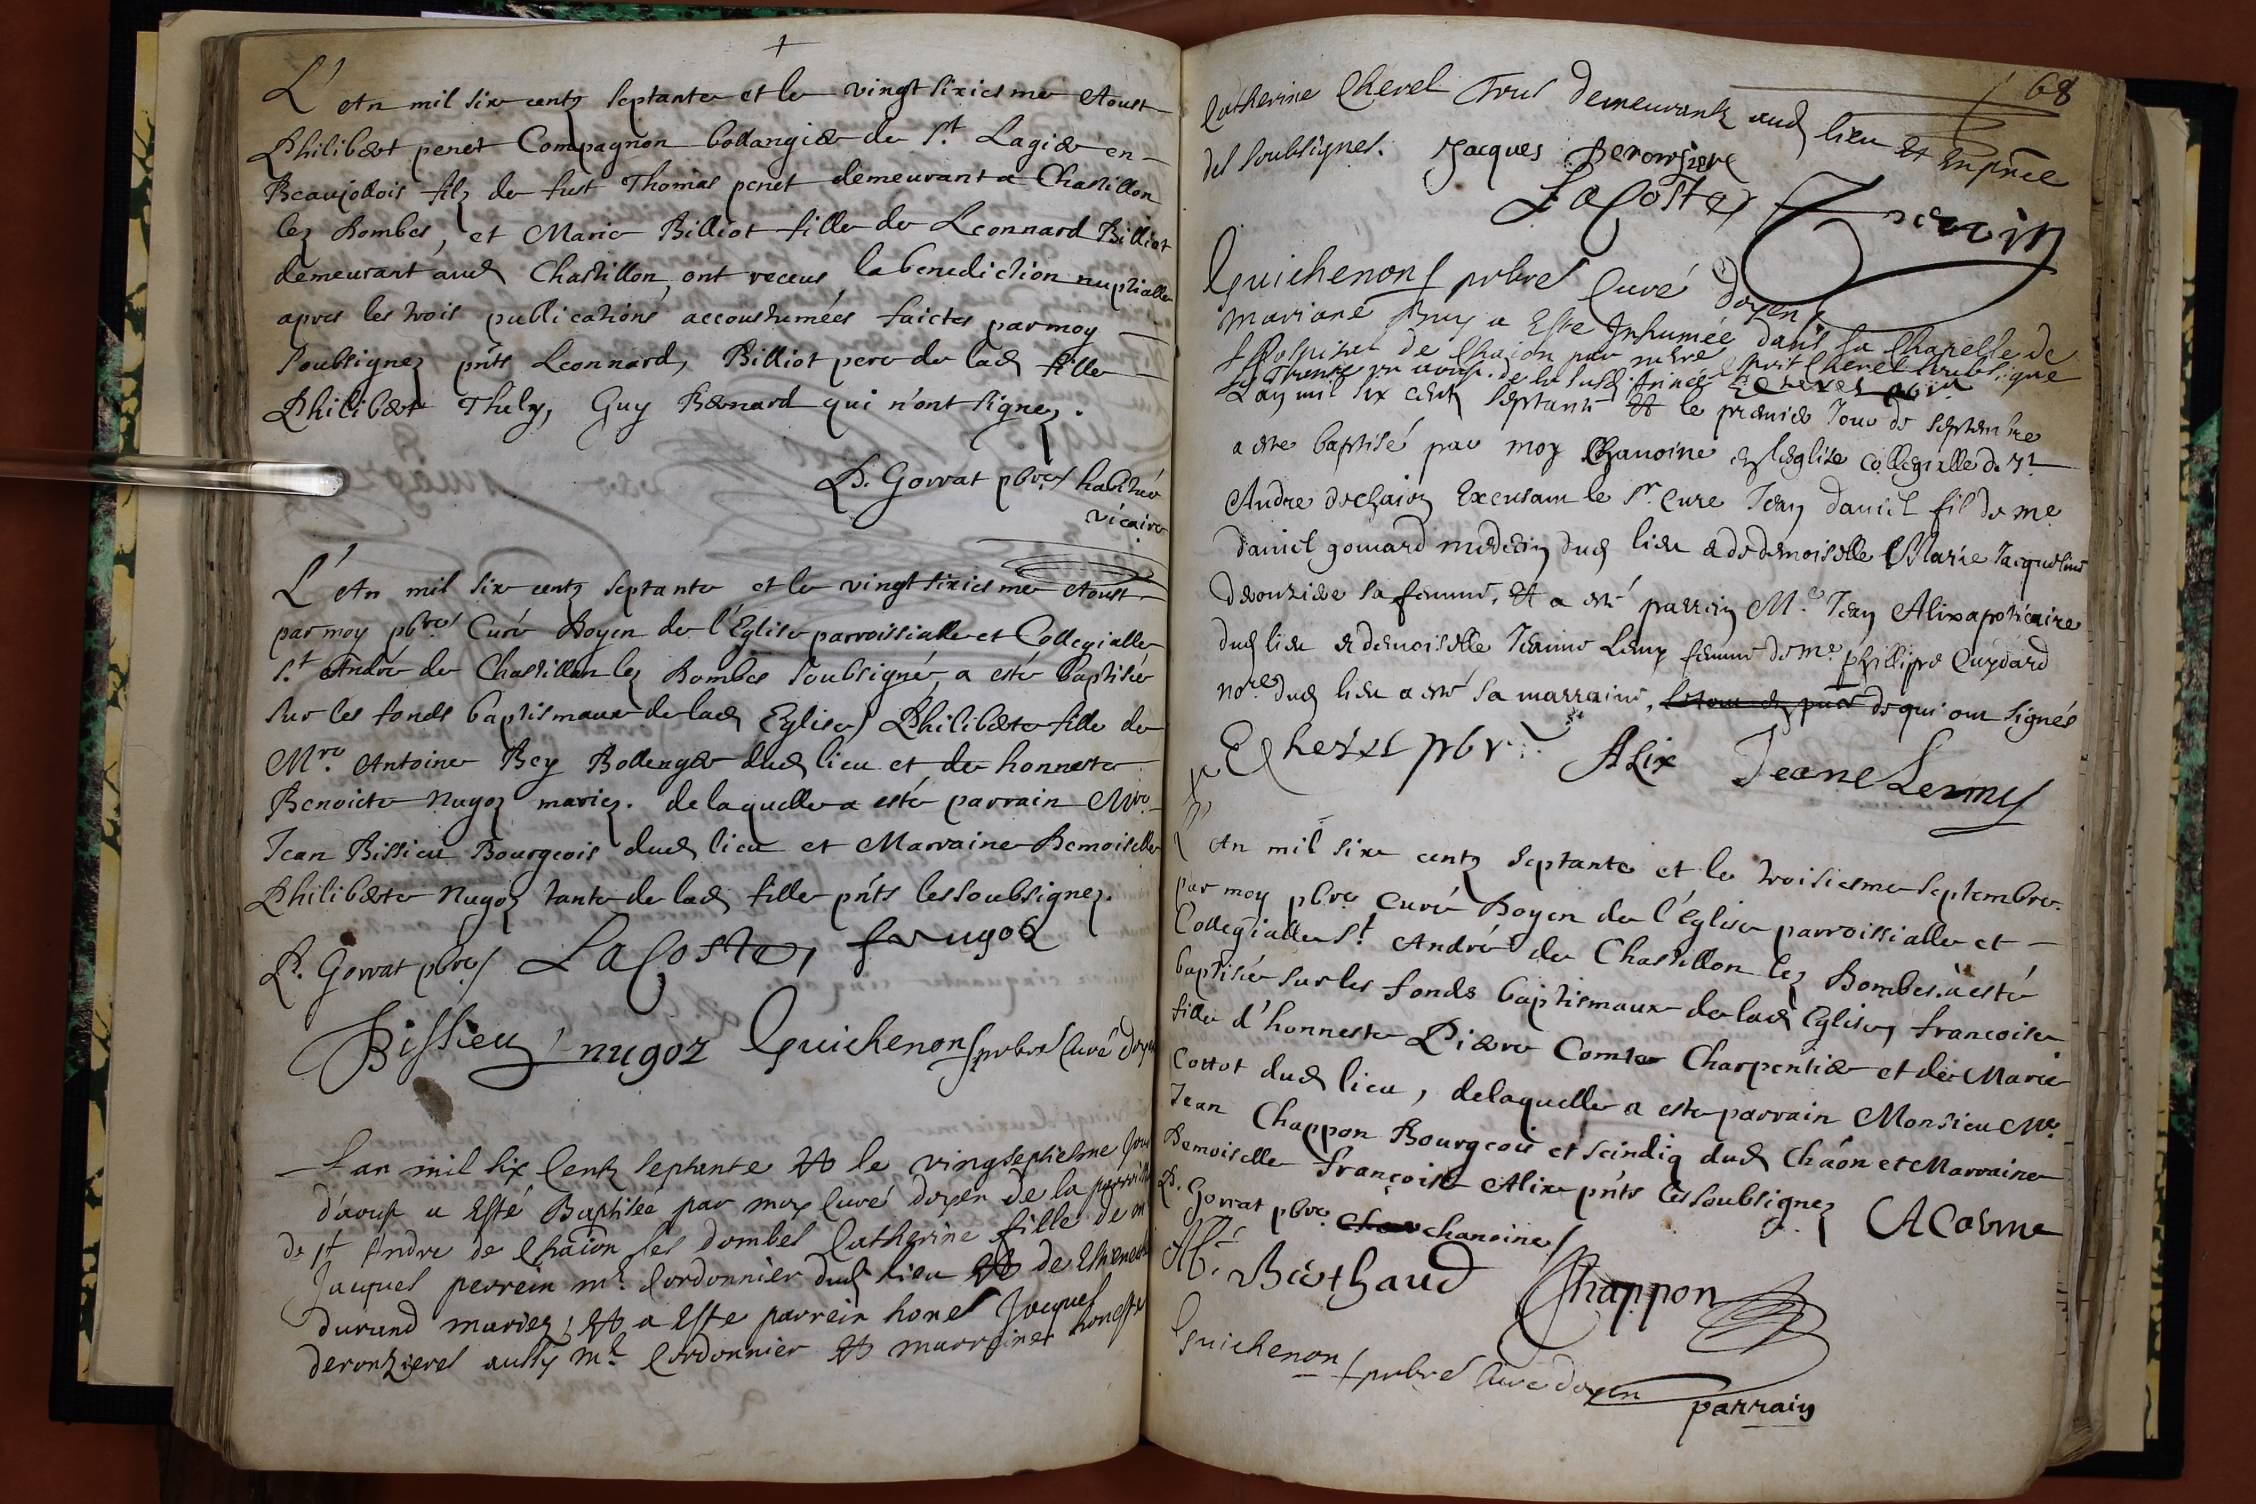 L'An mil six centz septante et le vingt sixiesme Aoust
Philibert penet Compagnon bollangier de St. Lagier en
Beaujollois filz de fust Thomas penet demeurant a Chastillon
lez Dombes, et Marie Billiot fille de Leonnard Billiot
demeurant aud Chastillon ont receus la benediction nuptialle
apres les trois publications accoustumées faictes par moy
soubsignez pnts Leonnard, Billiot pere de lad fille
Philibert Thely, Guy Bernard qui n'ont signez.
P. Gorrat pbre habitué
vicaire
L'An mil six centz septante et le vingt sixiesme Aoust
par moy pbre Curé Doyen de l'Eglise parroissialle et Collegialle
St André de Chastillon lez Dombes soubsigné, a esté baptisée
sur les fonds baptismaux de lad Eglise Philiberte fille de
Mre Antoine Rey Bollenger dud lieu et de honneste
Benoicte Nugoz mariez. delaquelle a esté parrain Mre
Jean Bissieu Bourgeois dud lieu et Marraine Demoiselle
Philiberte Nugoz tante de lad fille pnts les soubsignez.
P. Gorrat pbre LaCoste, f nugoz
Bissieu nugoz Guichenon prbre Curé doyen
Lan mil six Centz septante et le vingseptiesme jour
d'aoust a Esté Baptisée par moy Curé doyen de la parroisse
de st Andre de Chãon les dombes Catherine fille de
Jacques perrein me Cordonnier dud lieu et de
durand mariez; et a Este parrein hones Jacques
deronzieres aussy me Cordonnier et marraine honeste
68
Catherine Chevel tous demeurantz aud lieu et en pñce
des soubsignes. Jacques Deronsiere
LaCoste perrein
Guichenon prbre Curé doyen
Mariane Buy a Este Inhumée dans la Chapelle de
l'Hospital de Chaon par mere Chevel soubsigne
le Trente un aoust de la susd Année E Chevel pbr
Lan mil six cent septante et le premier Jour de septembre
a este baptisé par moy Chanoine en leglise collegialle de st
Andre de chaon Excusant le sr. cure Jean daniel fil de me
daniel gouuard medecin dud lieu & de demoiselle Marie Jacqueline
deronziere sa femme, et a esté parrein Me Jean Alix apoticaire
dud lieu et demoiselle Jeanne Leuny femme de me phillipe Cuydard
nore dud lieu a esté sa marraine, de qui ont signés
E Chevel pbr. Alix Jeane Lenny
L'An mil six centz septante et le troisiesme septembre
par moy pbre Curé Doyen de l'Eglise parroissialle et
Collegialle St André de Chastillon lez Dombes a esté
baptisée sur les fonds baptismaux de lad Eglise, francoise
fille d'honneste Pierre Comte Charpentier et de Marie
Cottot dud lieu, delaquelle a este parrain Monsieu Me
Jean Chappon Bourgeois et scindiq dud Chãon et Marraine
Demoiselle françoise Alix pnts les soubsignez
P. Gorrat pbre chanoine
Berthaud Chappon
Guichenon prbre Cure doyen
parrain